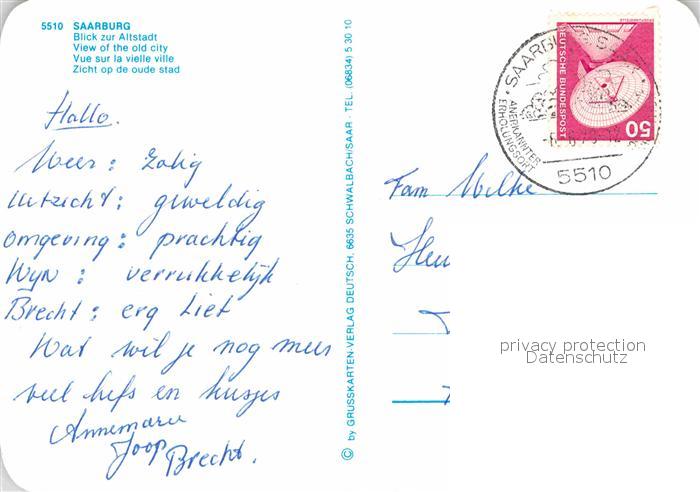 5510 SAARBURG
Blick zur Altstadt
View of the old city
Vue sur la vielle ville
Zicht op de oude stad
Hallo.
Weer : Zalig
Uitzicht : geweldig
omgeving : prachtig
Wijn : verrukkelijk
Brecht : erg lief
Wat wil je nog meer
veel liefs en kusjes
Annemarie
Joop
Brecht.
© by GRUSSKARTEN-VERLAG DEUTSCH, 6635 SCHWALBACH/SAAR · TEL. (06834) 5 30 10
DEUTSCHE BUNDESPOST
50
SAARBURG
ANERKANNTER
ERHOLUNGSORT
5510
Fam
privacy protection
Datenschutz